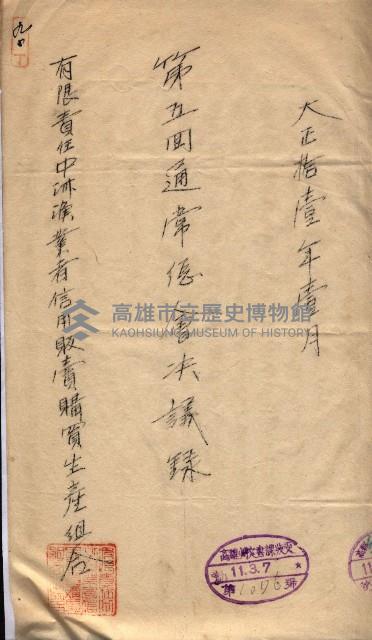 大正拾壹年壹月
第五回通常總會決議錄
有限責任中洲漁業者信用販賣購買生產組合
高雄市立歷史博物館
KAOHSIUNG MUSEUM OF HISTORY
11.3.7
第1076號